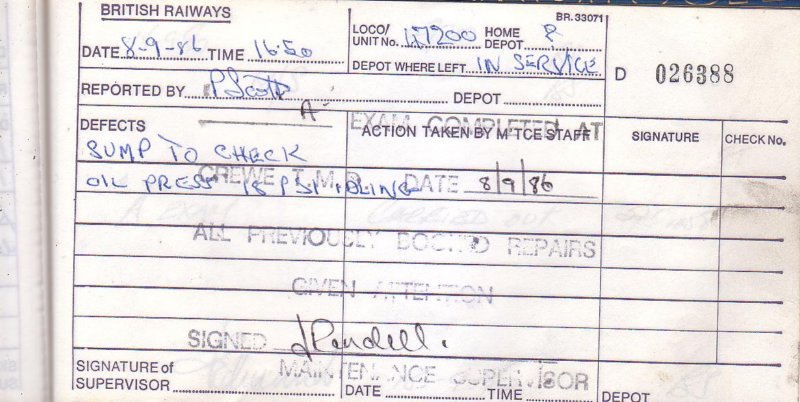 BRITISH RAIWAYS
BR. 33071
DATE 8-9-86 TIME 16.50
LOCO/ UNIT No. 47200 HOME DEPOT
DEPOT WHERE LEFT IN SERVICE
D 026388
REPORTED BY P Scott DEPOT
A EXAM COMPLETED AT
DEFECTS ACTION TAKEN BY M'TCE STAFF SIGNATURE CHECK No.
SUMP TO CHECK
OIL PRESS 18 PSI IDLING
CREWE T.M.D. DATE 8/9/86
A EXAM CARRIED OUT
ALL PREVIOUSLY BOOKED REPAIRS
GIVEN ATTENTION
SIGNED
MAINTENANCE SUPERVISOR
SIGNATURE of SUPERVISOR DATE TIME DEPOT